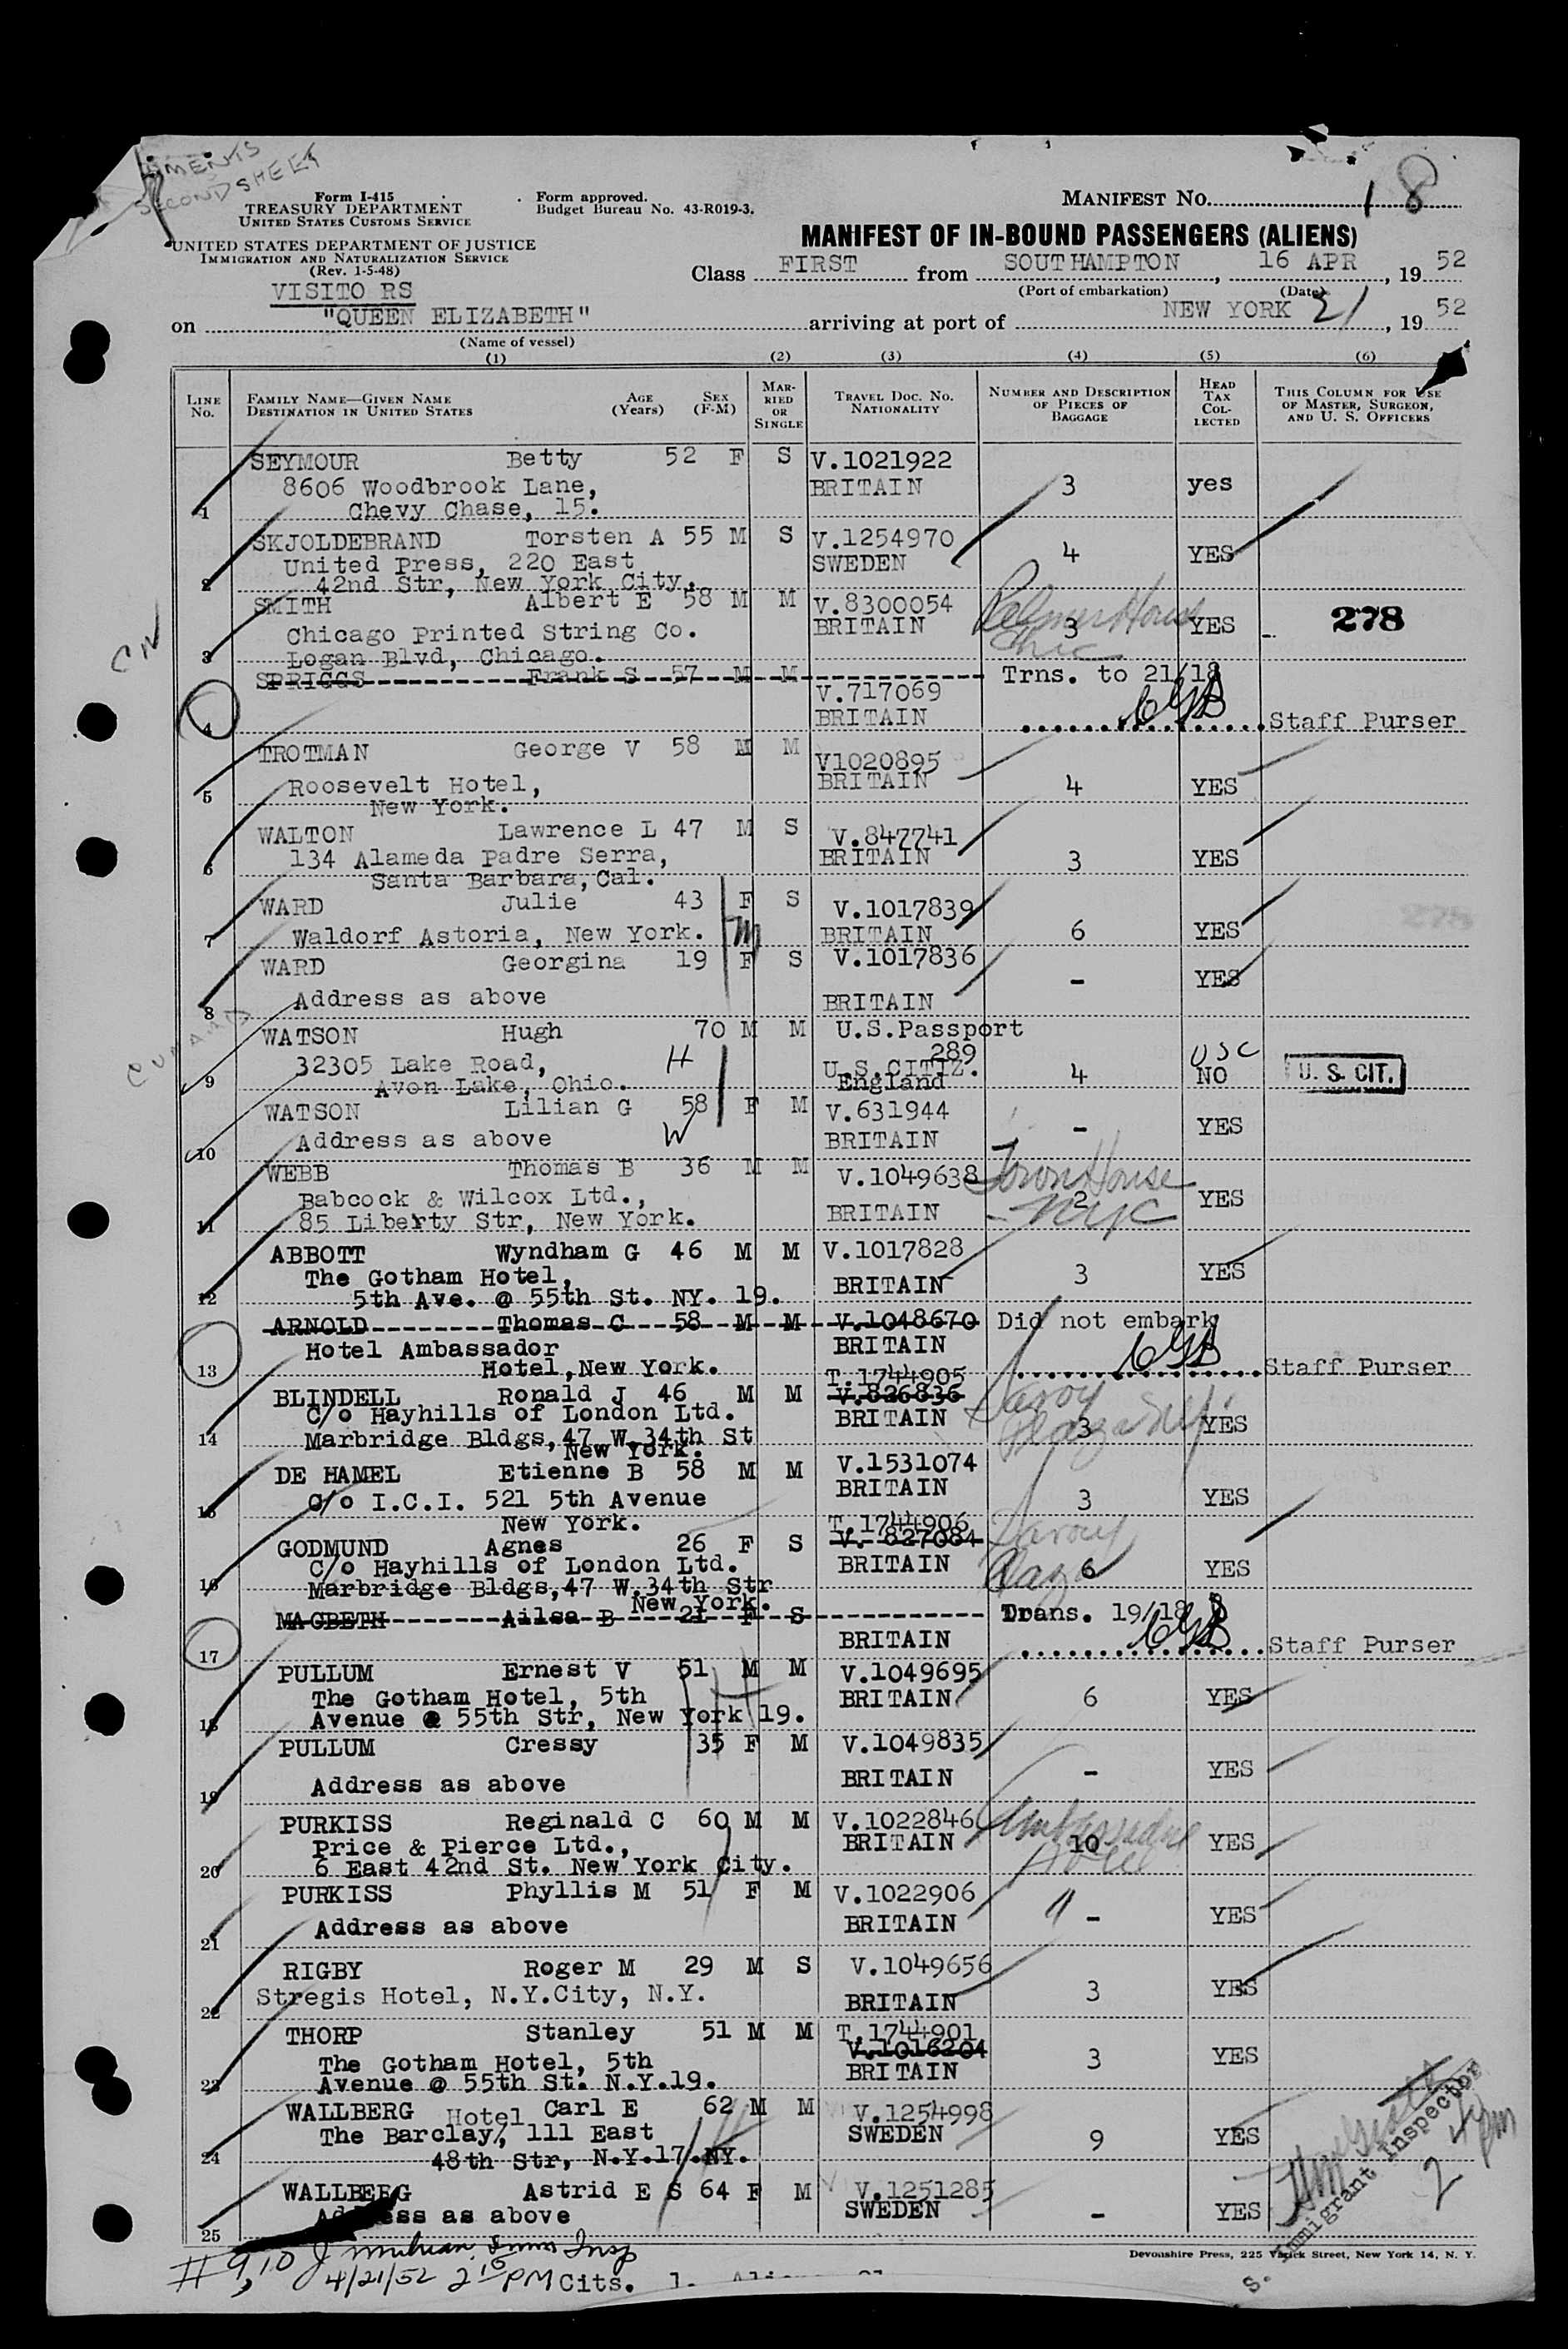 SECOND SHEET
Form I-415
TREASURY DEPARTMENT
UNITED STATES CUSTOMS SERVICE
Form approved.
Budget Bureau No. 43-R019-3.
MANIFEST NO. 18
UNITED STATES DEPARTMENT OF JUSTICE
IMMIGRATION AND NATURALIZATION SERVICE
(Rev. 1-5-48)
MANIFEST OF IN-BOUND PASSENGERS (ALIENS)
VISITO RS
Class FIRST from SOUTHAMPTON, 16 APR, 19 52
(Port of embarkation) (Date)
on "QUEEN ELIZABETH" arriving at port of NEW YORK 21, 19 52
(Name of vessel)
(1) (2) (3) (4) (5) (6)
LINE No. FAMILY NAME—GIVEN NAME DESTINATION IN UNITED STATES AGE (Years) SEX (F-M) MARRIED OR SINGLE TRAVEL DOC. NO. NATIONALITY NUMBER AND DESCRIPTION OF PIECES OF BAGGAGE HEAD TAX COLLECTED THIS COLUMN FOR USE OF MASTER, SURGEON, AND U. S. OFFICERS
SEYMOUR Betty 52 F S V.1021922
8606 Woodbrook Lane, BRITAIN 3 yes
1 Chevy Chase, 15.
SKJOLDEBRAND Torsten A 55 M S V.1254970
United Press, 220 East SWEDEN 4 YES
2 42nd Str, New York City.
SMITH Albert E 58 M M V.8300054 Palmer House
Chicago Printed String Co. BRITAIN 3 YES 278
3 Logan Blvd, Chicago. Chic
SPRIGGS Frank S 57 M M Trns. to 21/18
V.717069
4 BRITAIN Staff Purser
TROTMAN George V 58 M M V1020895
Roosevelt Hotel, BRITAIN 4 YES
5 New York.
WALTON Lawrence L 47 M S V.847741
134 Alameda Padre Serra, BRITAIN 3 YES
6 Santa Barbara, Cal.
WARD Julie 43 F S V.1017839
7 Waldorf Astoria, New York. BRITAIN 6 YES
WARD Georgina 19 F S V.1017836
8 Address as above BRITAIN - YES
WATSON Hugh 70 M M U.S.Passport
32305 Lake Road, H 289 USC
9 Avon Lake, Ohio. U.S.CITIZ. 4 NO U. S. CIT.
England
WATSON Lilian G 58 F M V.631944
10 Address as above W BRITAIN - YES
WEBB Thomas B 36 M M V.1049638 Town House
Babcock & Wilcox Ltd., 2 YES
11 85 Liberty Str, New York. BRITAIN NYC
ABBOTT Wyndham G 46 M M V.1017828
The Gotham Hotel, BRITAIN 3 YES
12 5th Ave. @ 55th St. NY. 19.
ARNOLD Thomas C 58 M M V.1048670 Did not embark
Hotel Ambassador BRITAIN
13 Hotel, New York. Staff Purser
T.1744905
BLINDELL Ronald J 46 M M V.826836 Savoy
C/o Hayhills of London Ltd. BRITAIN 3 YES
14 Marbridge Bldgs, 47 W.34th St Plaza
New York.
DE HAMEL Etienne B 58 M M V.1531074
C/o I.C.I. 521 5th Avenue BRITAIN 3 YES
15 New York.
T.1744906
GODMUND Agnes 26 F S V. 827084 Savoy
C/o Hayhills of London Ltd. BRITAIN Plaza 6 YES
16 Marbridge Bldgs, 47 W.34th Str
New York.
MACBETH Ailsa B 21 F S Trans. 19/18
17 BRITAIN Staff Purser
PULLUM Ernest V 51 M M V.1049695
The Gotham Hotel, 5th BRITAIN 6 YES
18 Avenue @ 55th Str, New York 19.
PULLUM Cressy 35 F M V.1049835
19 Address as above BRITAIN - YES
PURKISS Reginald C 60 M M V.1022846 Ambassador
Price & Pierce Ltd., BRITAIN 10 YES
20 6 East 42nd St. New York City. Hotel
PURKISS Phyllis M 51 F M V.1022906
21 Address as above BRITAIN " - YES
RIGBY Roger M 29 M S V.1049656
22 Stregis Hotel, N.Y.City, N.Y. BRITAIN 3 YES
THORP Stanley 51 M M T.1744901
V.1016204
The Gotham Hotel, 5th BRITAIN 3 YES
23 Avenue @ 55th St. N.Y.19.
WALLBERG Carl E 62 M M V.1254998
The Barclay Hotel, 111 East SWEDEN 9 YES
24 48th Str, N.Y.17 NY.
WALLBERG Astrid E S 64 F M V.1251285
Address as above SWEDEN - YES
25
Immigrant Inspector
2 4 pm
Devonshire Press, 225 Varick Street, New York 14, N. Y.
#9,10 Imm Insp
4/21/52 2 15 PM Cits. 1.